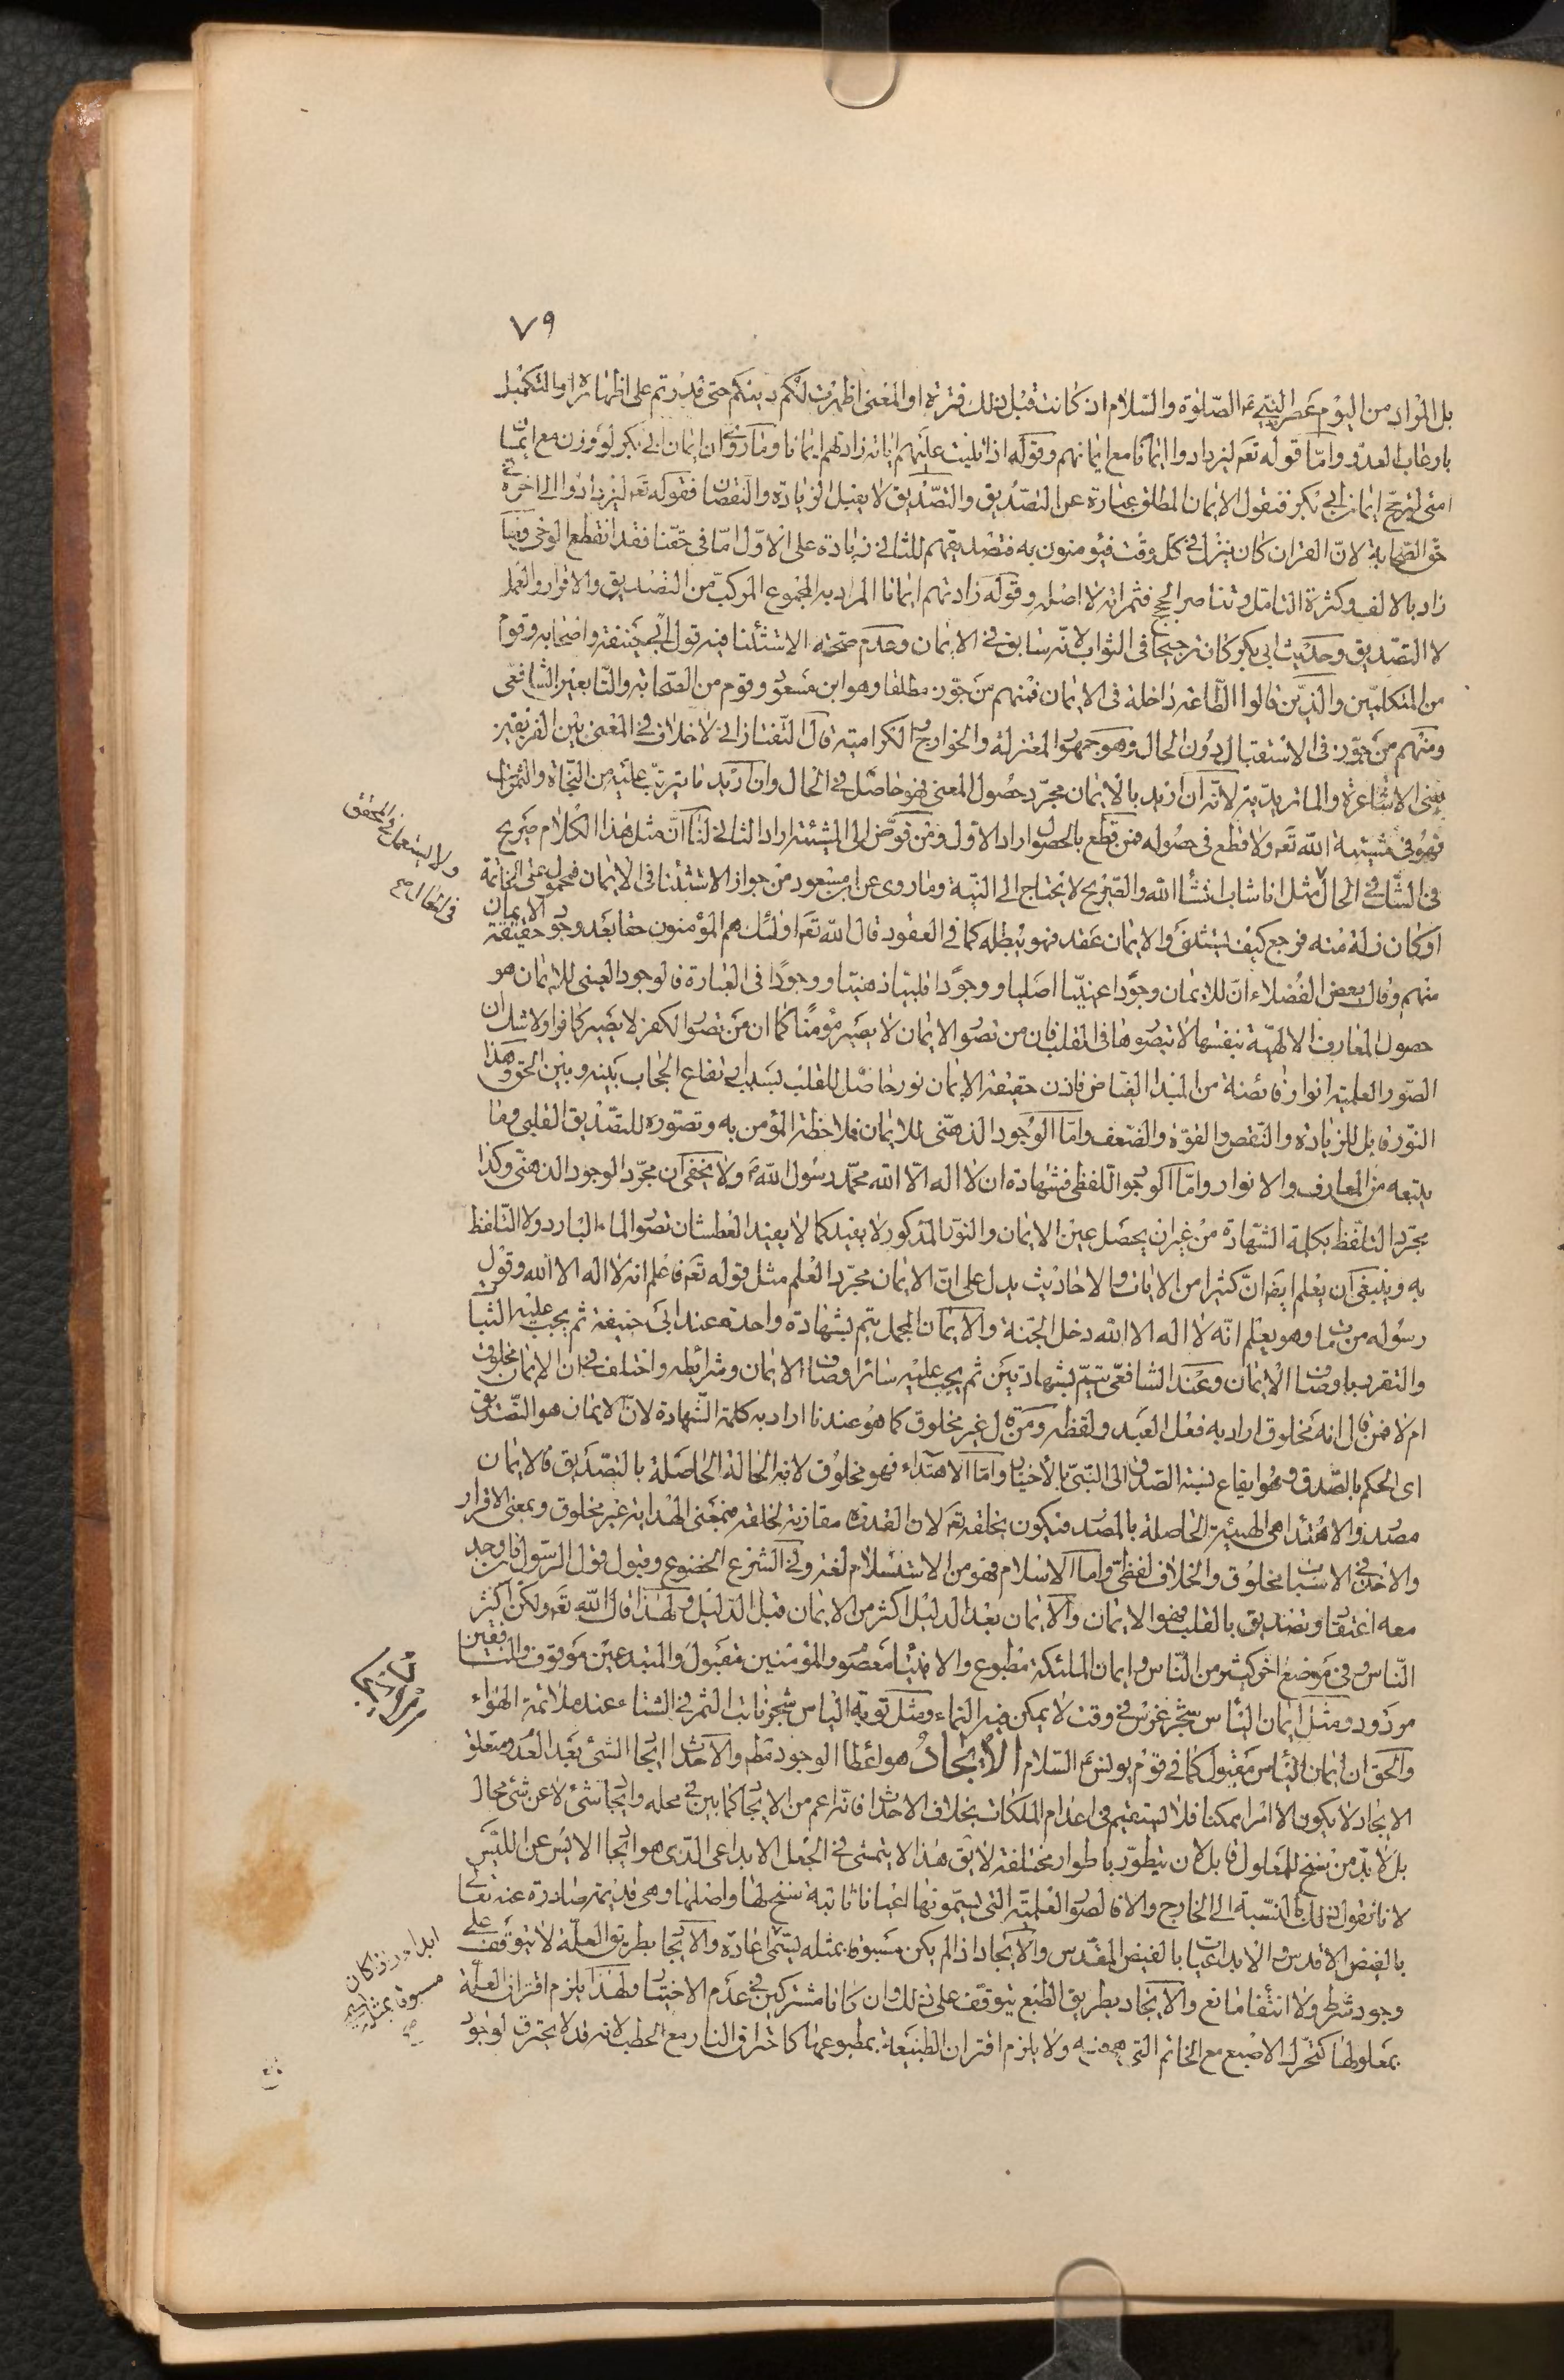 ٧٩
بل المراد من اليوم عصر النبي عم الصلوة والسلام اذ كانت قبل ذلك فترة او المعنى اظهرت لكم دينكم حتى قدرتم على اظهاره او التكميل
بارعاب العدو واما قوله تعم ليزدادوا ايمانا مع ايمانهم وقوله اذا تليت عليهم اياته زادتهم ايمانا وما روى ان ايمان ابى بكر لو وزن مع ايمان
امتى لترجح ايمان ابى بكر فنقول الايمان المطلق عبارة عن التصديق والتصديق لا يقبل الزيادة والنقصان فقوله تعم ليزدادوا الى اخره فى
حق الصحابة لان القران كان ينزل فى كل وقت فيؤمنون به فتصديقهم للثانى زيادة على الاول اما فى حقنا فقد انقطع الوحى وما
زاد بالالف وكثرة التامل وتناصر الحجج فثمراته لا اصله وقوله زادتهم ايمانا المراد به المجموع المركب من التصديق والاقرار والعمل
لا التصديق وحديث ابى بكر كان ترجيحا فى الثواب لانه سابق فى الايمان وعدم صحة الاستثنا فيه قول ابى حنيفة واصحابه وقوم
من المتكلمين والذين قالوا الطاعة داخلة فى الايمان فمنهم من جوز مطلقا وهو ابن مسعود وقوم من الصحابة والتابعين الشافعى
ومنهم من جوز فى الاستقبال دون الحال وهو جمهور المعتزلة والخوارج والكرامية قال التفتازانى لا خلاف فى المعنى بين الفريقين
يعنى الاشاعرة والماتريدية لانه ان اريد بالايمان مجرد حصول المعنى فهو حاصل فى الحال وان اريد ما يترتب عليه من النجاة والثمرات
فهو فى مشيئة الله تعم ولا قطع فى حصوله فمن قطع بالحصول اراد الاول ومن فوض الى المشيئة اراد الثانى لنا ان مثل هذا الكلام صريح
فى الشك فى الحال مثل انا شاب انشأ الله والصريح لا يحتاج الى النية وما روى عن ابن مسعود من جواز الاستثنا فى الايمان فمحمول على الخاتمة
ولا يستعمل فى المحقق
فى الحال صح
او كان زلة منه فرجع كيف يستثنى والايمان عقد فهو يبطله كما فى العقود قال الله تعم اولئك هم المؤمنون حقا بعد وجود حقيقة الايمان
منهم وقال بعض الفضلاء ان للايمان وجودا عينيا اصليا ووجودا قلبيا ذهنيا ووجودا فى العبارة فالوجود العينى للايمان هو
حصول المعارف الالهية بنفسها لا بتصورها فى القلب فان من تصور الايمان لا يصير مؤمنا كما ان من تصور الكفر لا يصير كافرا ولا شك ان
الصور العلمية انوار فائضة من المبدا الفياض فاذن حقيقة الايمان نور حاصل للقلب بسبب ارتفاع الحجاب بينه وبين الحق وهذا
النور قابل للزيادة والنقص والقوة والضعف واما الوجود الذهنى للايمان فملاحظة المؤمن به وتصوره للتصديق القلبى وما
يتبعه من المعارف والانوار واما الوجود اللفظى فشهادة ان لا اله الا الله محمد رسول الله م ولا يخفى ان مجرد الوجود الذهنى وكذا
مجرد التلفظ بكلمة الشهادة من غير ان يحصل عين الايمان والنور المذكور لا يفيد كما لا يفيد العطشان تصور الماء البارد ولا التلفظ
به وينبغى ان يعلم ايض ان كثيرا من الايات والاحاديث يدل على ان الايمان مجرد العلم مثل قوله تعم فاعلم انه لا اله الا الله وقول
رسوله من مات وهو يعلم انه لا اله الا الله دخل الجنة والايمان المجمل يتم بشهادة واحدة عند ابى حنيفة ثم يجب عليه الثبات
والتقرر باوصاف الايمان وعند الشافعى يتم بشهادتين ثم يجب عليه سائر اوصاف الايمان وشرائطه واختلف فى ان الايمان مخلوق
ام لا فمن قال انه مخلوق اراد به فعل العبد ولفظه ومن قال غير مخلوق كما هو عندنا اراد به كلمة الشهادة لان الايمان هو التصديق
اى الحكم بالصدق وهو ايقاع نسبة الصدق الى النبى بالاختيار واما الاهتداء فهو مخلوق لانه الحالة الحاصلة بالتصديق فالايمان
مصدر والاهتداء هى الهيئة الحاصلة بالمصدر فيكون بخلقه تعم لان القدرة مقارنة لخلقه فبمعنى الهداية غير مخلوق وبمعنى الاقرار
والاخذ فى الاسباب مخلوق والخلاف لفظى واما الاسلام فهو من الاستسلام لغة وفى الشرع الخضوع وقبول قول الرسول فان وجد
معه اعتقاد وتصديق بالقلب فهو الايمان والايمان بعد الدليل اكثر من الايمان قبل الدليل ولهذا قال الله تعم ولكن اكثر
الناس وفى موضع اخر كثير من الناس وايمان الملئكة مطبوع والانبيا معصوم والمؤمنين مقبول والمبتدعين موقوف والمنافقين
مردود ومثل ايمان اليأس شجر غرس فى وقت لا يمكن فيه النماء ومثل توبة اليأس شجر نابت اثمر فى الشتاء عند ملائمة الهواء
والحق ان ايمان اليأس مقبول كما فى قوم يونس عم السلام الايجاد هو اعطا الوجود مطم والاحداث ايجاد الشئ بعد العدم ومتعلق
الايجاد لا يكون الا امرا ممكنا فلا يستقيم فى اعدام الملكات بخلاف الاحداث فانه اعم من الايجاد كما بين فى محله وايجاد شئ لا عن شئ محال
بل لا بد من سنخ للمعلول قابل لان يتطور باطوار مختلفة لا يق هذا لا يتمشى فى الجعل الابداعى الذى هو ايجاد الايس عن الليس
لانا نقول ذلك بالنسبة الى الخارج والا فالصور العلمية التى يسمونها اعيانا ثابتة سنخ لها واصلها وهى قديمة صادرة عنه تعالى
بالفيض الاقدس والابداعيات بالفيض المقدس والايجاد اذا لم يكن مسبوقا بمثله يسمى اعادة والايجاد بطريق العلة لا يتوقف على
ابدا وان كان
مسبوقا بمثله يسمى
صح
وجود شرط ولا انتفا مانع والايجاد بطريق الطبع يتوقف على ذلك وان كانا مشتركين فى عدم الاختيار ولهذا يلزم اقتران العلة
بمعلولها كتحرك الاصبع مع الخاتم التى هو فيه ولا يلزم اقتران الطبيعة بمطبوعها كاحراق النار مع الحطب لانه قد لا يحترق لوجود